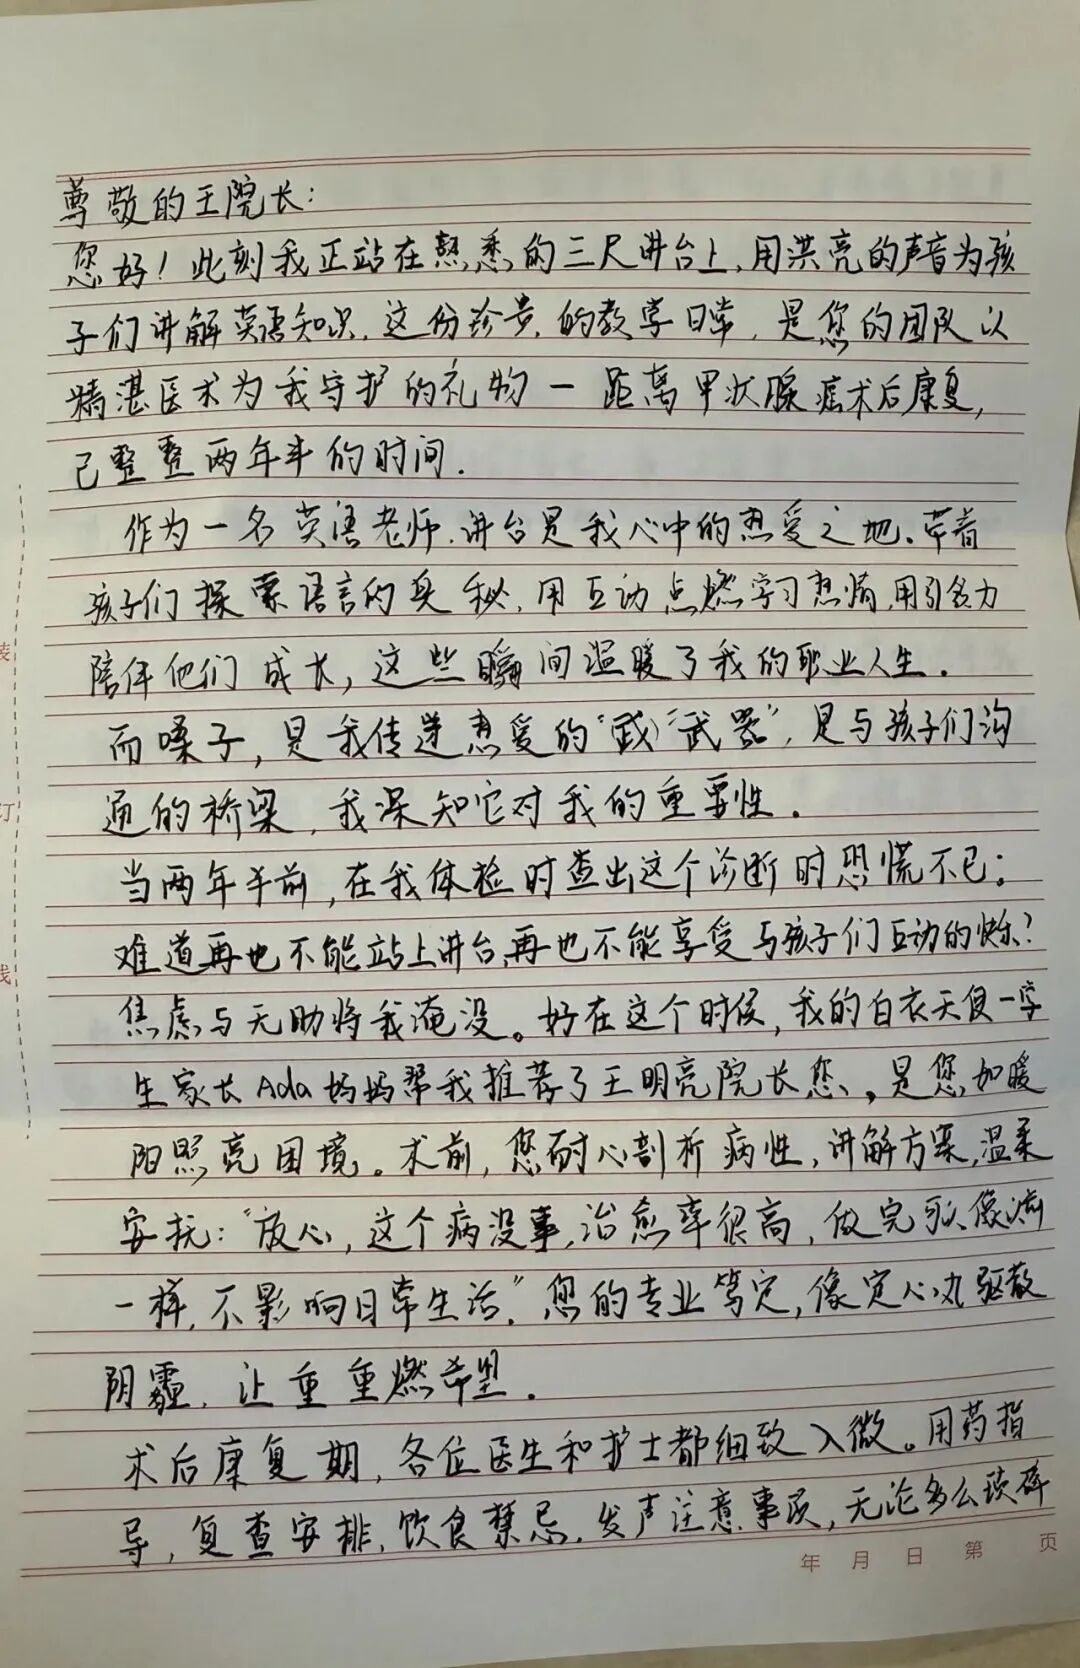 尊敬的王院长：
您好！此刻我正站在熟悉的三尺讲台上，用洪亮的声音为孩
子们讲解英语知识，这份珍贵的教学日常，是您的团队以
精湛医术为我守护的礼物一距离甲状腺癌术后康复，
已整整两年半的时间.
作为一名英语老师，讲台是我心中的热爱之地。带着
孩子们探索语言的奥秘，用互动点燃学习热情，用引领力
陪伴他们成长，这些瞬间温暖了我的职业人生.
而嗓子，是我传递热爱的“武器”，是与孩子们沟
通的桥梁，我深知它对我的重要性.
当两年半前，在我体检时查出这个诊断时恐慌不已：
难道再也不能站上讲台，再也不能享受与孩子们互动的快乐？
焦虑与无助将我淹没。好在这个时候，我的白衣天使一学
生家长Ada妈妈帮我推荐了王明亮院长您，是您如暖
阳照亮困境。术前，您耐心剖析病性，讲解方案，温柔
安抚：“放心，这个病没事，治愈率很高，做完可以像
一样，不影响日常生活”，您的专业笃定，像定心丸驱散
阴霾，让重重燃希望.
术后康复期，各位医生和护士都细致入微。用药指
导，复查安排，饮食禁忌，发声注意事项，无论多么琐碎
年 月 日 第 页
装
订
线